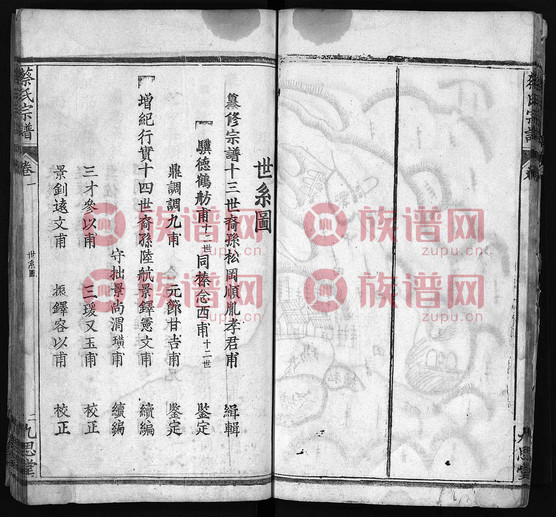 世系圖
纂修宗譜十三世裔孫松岡順胤孝君甫 緝輯
驥德鶴舫甫十一世同榛念西甫十二世 鑒定
鼎調調九甫 元郎甘吉甫 鑒定
增紀行實十四世裔孫陸航景鐸憲文甫 續編
守拙景尚渭璜甫 續編
三才參以甫 三瑗又玉甫 校正
景釗遠文甫 振鐸容以甫 校正
蔡氏宗譜
卷一
世系圖
九思堂
九思堂
族谱网
zupu.cn
族谱网
zupu.cn
族谱网
zupu.cn
族谱网
zupu.cn